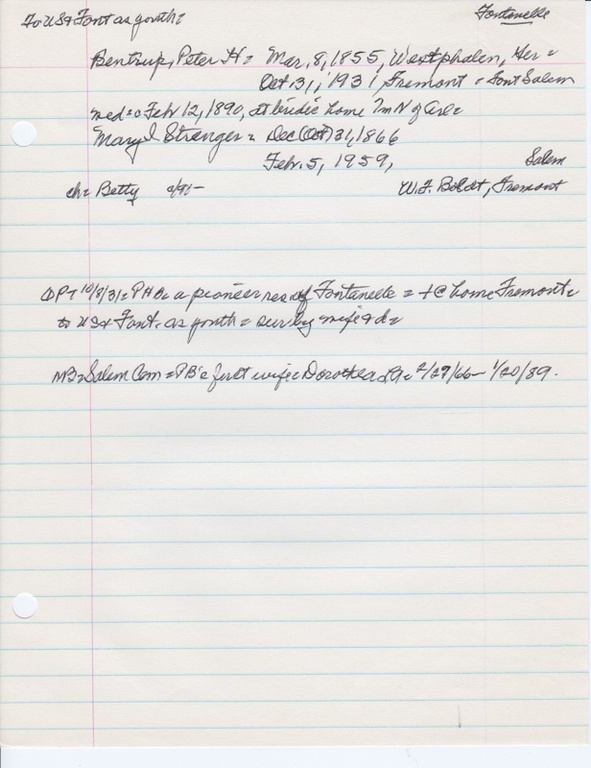 To US & Font as youth=
Fontanelle
Bentrup, Peter H = Mar. 8, 1855, Westphalen, Ger =
Oct 31, 1931, Fremont = Font Salem
med = Feb 12, 1890, at bride's home 7m N of
Mary Stranger = Dec (Oct) 31, 1866
Feb. 5, 1959, Salem
ch = Betty 2/91 - W.F. Boldt, Fremont
10/8/31 = PHB = a pioneer res of Fontanelle = + @ home Fremont =
to US & Font. as youth = sur by wife & d =
MB = Salem Cem = PB's first wife = Dorothea 2/27/66 - 1/20/89.